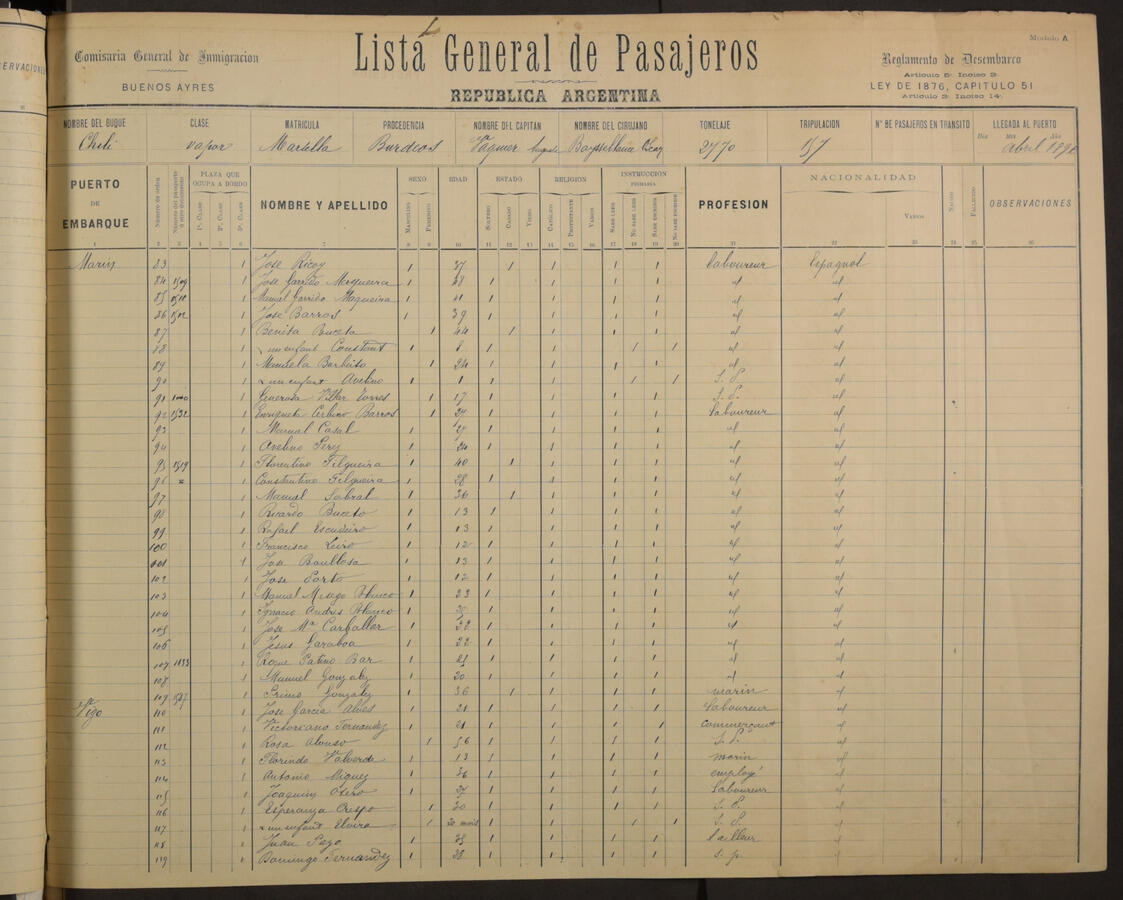 Modulo A
Comisaria General de Inmigracion
BUENOS AYRES
Lista General de Pasajeros
REPUBLICA ARGENTINA
Reglamento de Desembarco
Articulo 5º Inciso 2º
LEY DE 1876, CAPITULO 51
Articulo 2º Inciso 14º
NOMBRE DEL BUQUE CLASE MATRICULA PROCEDENCIA NOMBRE DEL CAPITAN NOMBRE DEL CIRUJANO TONELAJE TRIPULACION Nº DE PASAJEROS EN TRANSITO LLEGADA AL PUERTO
Chili vapor Marsella Burdeos Vaquier 3770 157 Abril
PUERTO DE EMBARQUE Número de orden PLAZA QUE OCUPA A BORDO 1ª CLASE 2ª CLASE 3ª CLASE NOMBRE Y APELLIDO SEXO MASCULINO FEMENINO EDAD ESTADO SOLTERO CASADO VIUDO RELIGION CATÓLICO PROTESTANTE VARIOS INSTRUCCIÓN PRIMARIA SABE LEER NO SABE LEER SABE ESCRIBIR NO SABE ESCRIBIR PROFESION NACIONALIDAD VARIOS NACIDO FALLECIDO OBSERVACIONES
1 2 3 4 5 6 7 8 9 10 11 12 13 14 15 16 17 18 19 20 21 22 23 24 25 26
Marin 83 1 Jose Ricoy 1 37 1 1 1 1 Laboureur Espagnol
84 1509 1 Jose Garrido Mosqueira 1 28 1 1 1 1 " "
85 1510 1 Manuel Garrido Moqueira 1 41 1 1 1 1 " "
86 1502 1 Jose Barros 1 39 1 1 1 1 " "
87 1 Benita Buceta 1 44 1 1 1 1 " "
88 1 un enfant Constant 1 8 1 1 1 1 " "
89 1 Manuela Barbeito 1 24 1 1 1 1 " "
90 1 un enfant Avelino 1 1 1 1 1 1 S. P. "
91 1 Generosa Villar Torres 1 17 1 1 1 1 S. P. "
92 1532 1 Enriqueta Cerbino Barros 1 24 1 1 1 1 Laboureur "
93 1 Manuel Casal 1 29 1 1 1 1 " "
94 1 Avelino Perez 1 24 1 1 1 1 " "
95 1519 1 Florentino Filgueira 1 40 1 1 1 1 " "
96 " 1 Constantino Filgueira 1 28 1 1 1 1 " "
97 1 Manuel Sobral 1 36 1 1 1 1 " "
98 1 Ricardo Buceto 1 13 1 1 1 1 " "
99 1 Rafael Escudeiro 1 13 1 1 1 1 " "
100 1 Francisco Leiro 1 12 1 1 1 1 " "
101 1 Jose Boullosa 1 13 1 1 1 1 " "
102 1 Jose Porto 1 12 1 1 1 1 " "
103 1 Manuel Misego Blanco 1 23 1 1 1 1 " "
104 1 Ignacio Andres Blanco 1 1 1 1 1 " "
105 1 Jose Mª Carballer 1 22 1 1 1 1 " "
106 1 Jesus Garaboa 1 22 1 1 1 1 " "
107 1533 1 Roque Patino Bar 1 21 1 1 1 1 " "
108 1 Manuel Gonzalez 1 20 1 1 1 1 " "
109 1537 1 Primo Gonzalez 1 36 1 1 1 1 marin "
Vigo 110 1 Jose Garcia Alves 1 21 1 1 1 1 Laboureur "
111 1 Victoriano Fernandez 1 21 1 1 1 1 commerçant "
112 1 Rosa Alonso 1 56 1 1 1 1 S. P. "
113 1 Florindo Valverde 1 13 1 1 1 1 marin "
114 1 Antonio Miguez 1 36 1 1 1 1 employé "
115 1 Joaquin Otero 1 27 1 1 1 1 Laboureur "
116 1 Esperanza Crespo 1 20 1 1 1 1 S. P. "
117 1 un enfant Elvira 1 20 mois 1 1 1 1 S. P. "
118 1 Juan Pazo 1 1 1 1 1 tailleur "
119 1 Domingo Fernandez 1 28 1 1 1 1 S. P. "